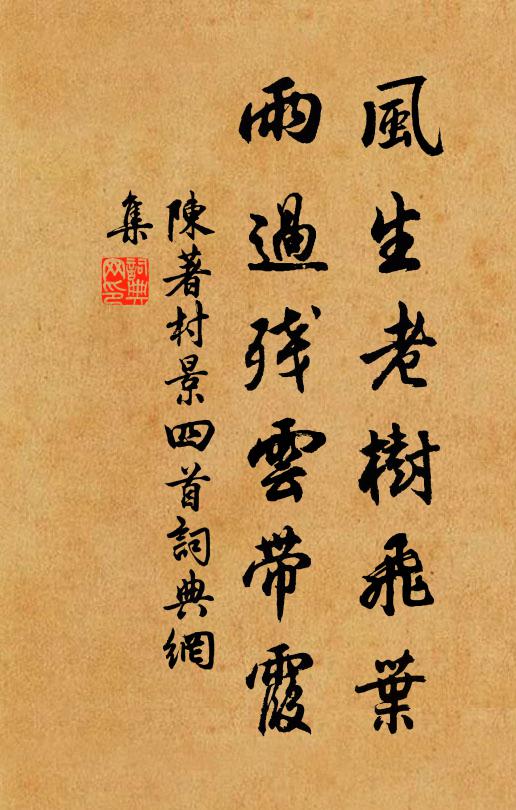 風生老樹飛葉
雨過残雲帶霞
陳著村景四首詞典網
集
詞典网印